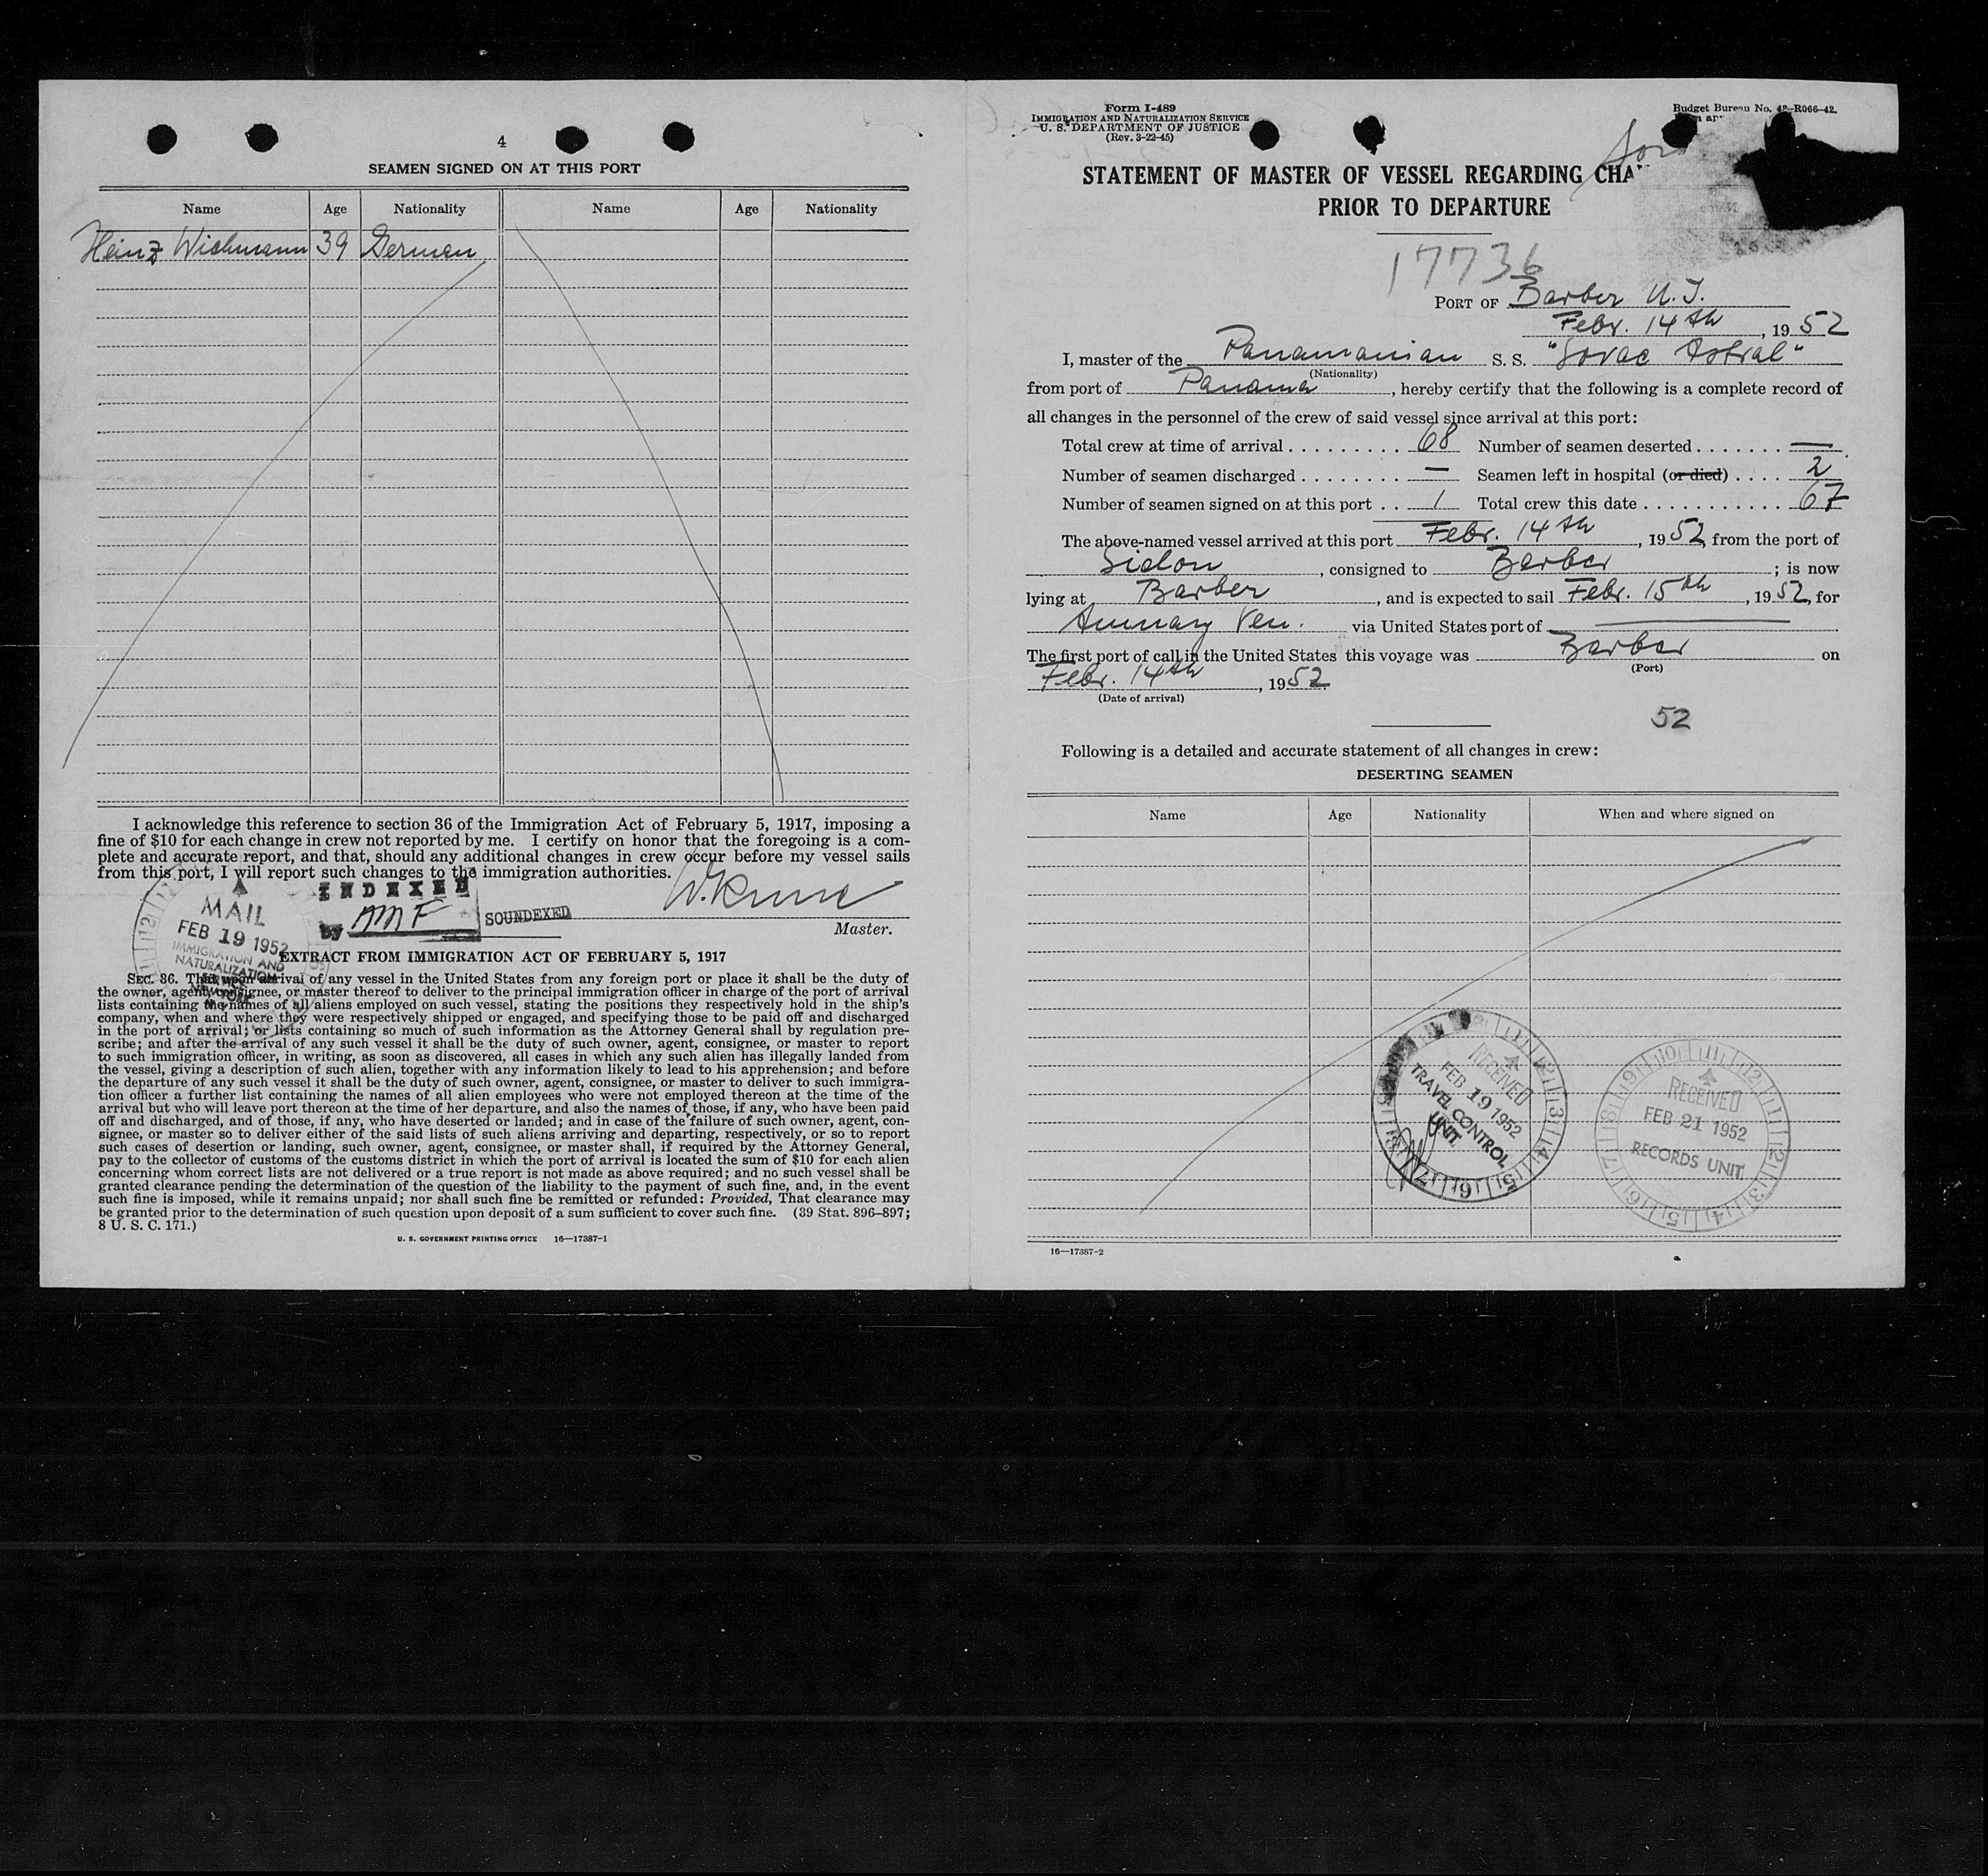 4
SEAMEN SIGNED ON AT THIS PORT
Name Age Nationality Name Age Nationality
Heinz Wichmann 39 German
I acknowledge this reference to section 36 of the Immigration Act of February 5, 1917, imposing a
fine of $10 for each change in crew not reported by me. I certify on honor that the foregoing is a com-
plete and accurate report, and that, should any additional changes in crew occur before my vessel sails
from this port, I will report such changes to the immigration authorities.
INDEXED
by MMF
SOUNDEXED
Master.
MAIL
FEB 19 1952
IMMIGRATION AND
NATURALIZATION
EXTRACT FROM IMMIGRATION ACT OF FEBRUARY 5, 1917
SEC. 36. That upon arrival of any vessel in the United States from any foreign port or place it shall be the duty of
the owner, agent, consignee, or master thereof to deliver to the principal immigration officer in charge of the port of arrival
lists containing the names of all aliens employed on such vessel, stating the positions they respectively hold in the ship's
company, when and where they were respectively shipped or engaged, and specifying those to be paid off and discharged
in the port of arrival; or lists containing so much of such information as the Attorney General shall by regulation pre-
scribe; and after the arrival of any such vessel it shall be the duty of such owner, agent, consignee, or master to report
to such immigration officer, in writing, as soon as discovered, all cases in which any such alien has illegally landed from
the vessel, giving a description of such alien, together with any information likely to lead to his apprehension; and before
the departure of any such vessel it shall be the duty of such owner, agent, consignee, or master to deliver to such immigra-
tion officer a further list containing the names of all alien employees who were not employed thereon at the time of the
arrival but who will leave port thereon at the time of her departure, and also the names of those, if any, who have been paid
off and discharged, and of those, if any, who have deserted or landed; and in case of the failure of such owner, agent, con-
signee, or master so to deliver either of the said lists of such aliens arriving and departing, respectively, or so to report
such cases of desertion or landing, such owner, agent, consignee, or master shall, if required by the Attorney General,
pay to the collector of customs of the customs district in which the port of arrival is located the sum of $10 for each alien
concerning whom correct lists are not delivered or a true report is not made as above required; and no such vessel shall be
granted clearance pending the determination of the question of the liability to the payment of such fine, and, in the event
such fine is imposed, while it remains unpaid; nor shall such fine be remitted or refunded: Provided, That clearance may
be granted prior to the determination of such question upon deposit of a sum sufficient to cover such fine. (39 Stat. 896–897;
8 U. S. C. 171.)
U. S. GOVERNMENT PRINTING OFFICE 16—17387-1
Form I-489
IMMIGRATION AND NATURALIZATION SERVICE
U. S. DEPARTMENT OF JUSTICE
(Rev. 3-22-45)
Budget Bureau No. 43-R066-42.
STATEMENT OF MASTER OF VESSEL REGARDING CHA
PRIOR TO DEPARTURE
17736
PORT OF Barber N.J.
Febr. 14th, 1952
I, master of the Panamanian S. S. "Sovac Astral"
(Nationality)
from port of Panama, hereby certify that the following is a complete record of
all changes in the personnel of the crew of said vessel since arrival at this port:
Total crew at time of arrival . . . . . . . . . 68 Number of seamen deserted . . . . . . . —
Number of seamen discharged . . . . . . . . — Seamen left in hospital (or died) . . . . 2
Number of seamen signed on at this port . . 1 Total crew this date . . . . . . . . . . . . 67
The above-named vessel arrived at this port Febr. 14th, 1952, from the port of
Sidon, consigned to Barber; is now
lying at Barber, and is expected to sail Febr. 15th, 1952, for
Amuay Ven. via United States port of —
The first port of call in the United States this voyage was Barber on
(Port)
Febr. 14th, 1952
(Date of arrival)
52
Following is a detailed and accurate statement of all changes in crew:
DESERTING SEAMEN
Name Age Nationality When and where signed on
RECEIVED
FEB 19 1952
TRAVEL CONTROL
UNIT
RECEIVED
FEB 21 1952
RECORDS UNIT
16—17387-2